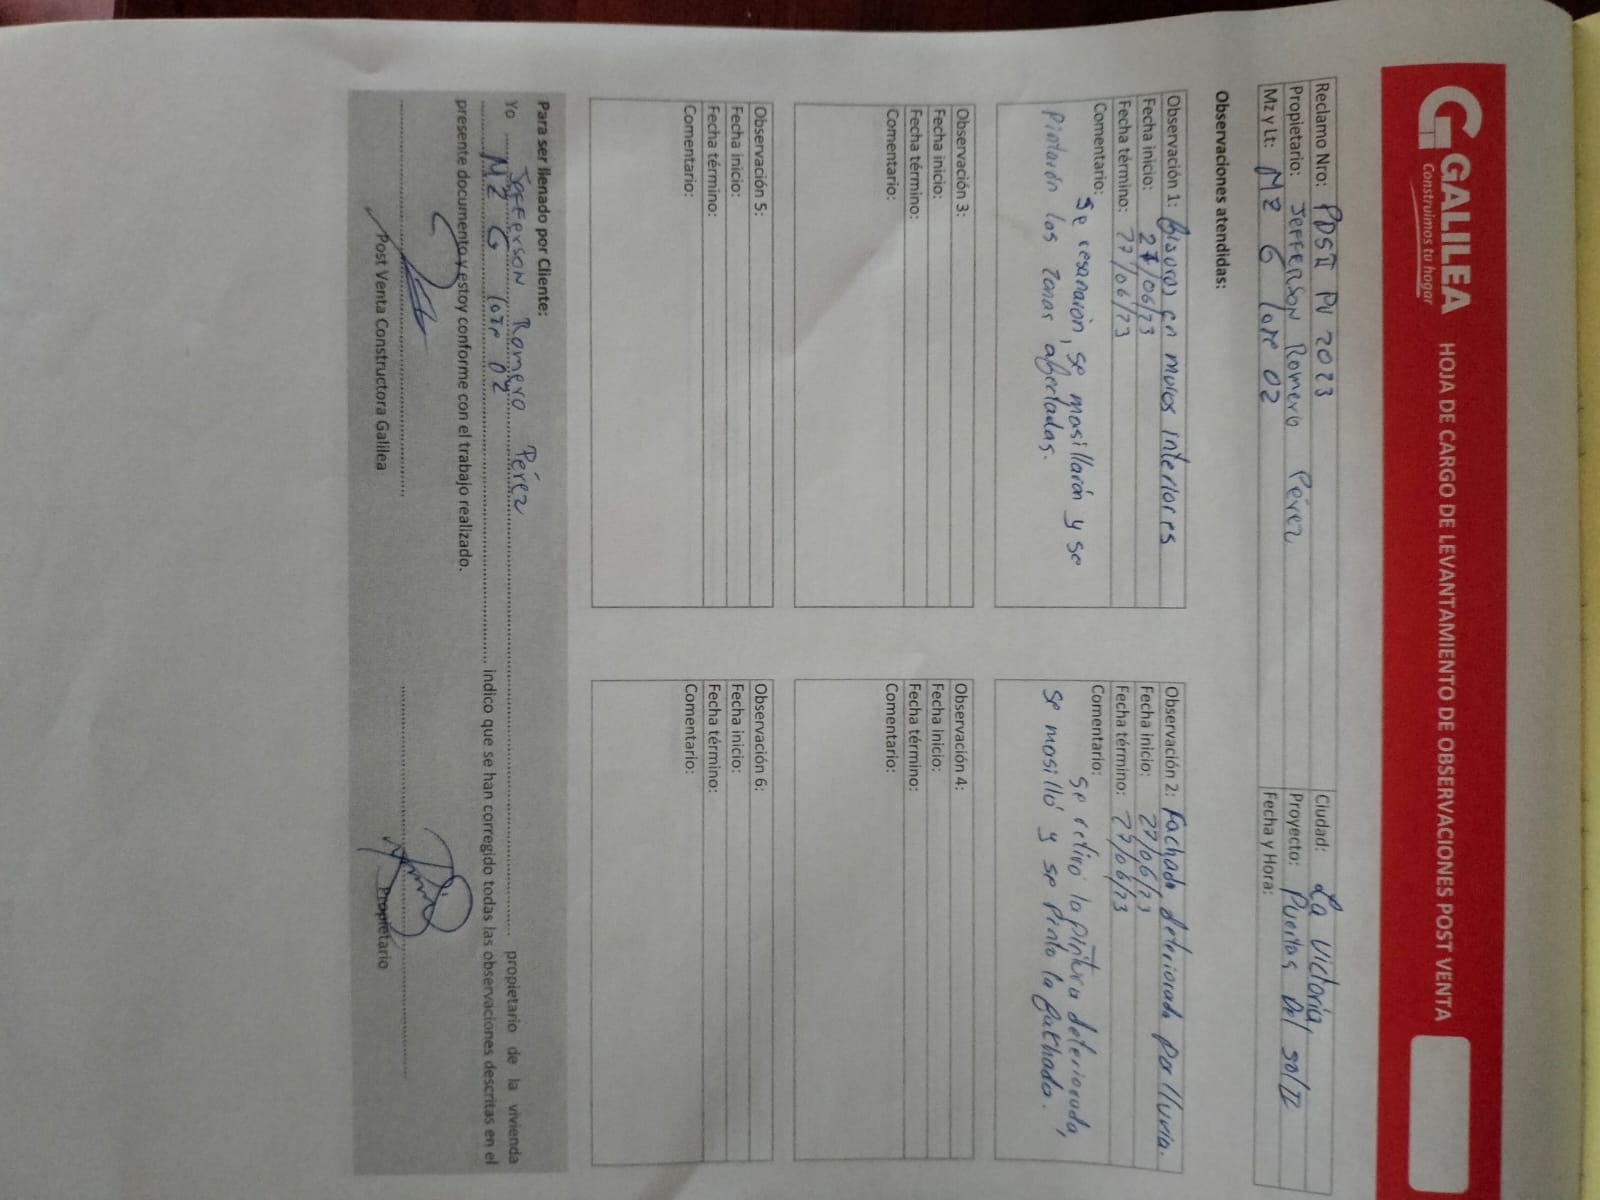 GALILEA
Construimos tu hogar
HOJA DE CARGO DE LEVANTAMIENTO DE OBSERVACIONES POST VENTA
Reclamo Nro: PDSII PV 2023
Ciudad: La Victoria
Propietario: Jefferson Romero Pérez
Proyecto: Puertas Del sol II
Mz y Lt: Mz G lote 02
Fecha y Hora:
Observaciones atendidas:
Observación 1: Fisuras en muros interiores
Fecha inicio: 27/06/23
Fecha término: 27/06/23
Comentario: Se resanarón, se masillarón y se
pintarón las zonas afectadas.
Observación 2: Fachada deteriorada por lluvia.
Fecha inicio: 27/06/23
Fecha término: 27/06/23
Comentario: Se retiró la pintura deteriorada,
se masilló y se pinto la fachada.
Observación 3:
Fecha inicio:
Fecha término:
Comentario:
Observación 4:
Fecha inicio:
Fecha término:
Comentario:
Observación 5:
Fecha inicio:
Fecha término:
Comentario:
Observación 6:
Fecha inicio:
Fecha término:
Comentario:
Para ser llenado por Cliente:
Yo Jefferson Romero Pérez propietario de la vivienda
Mz G lote 02 indico que se han corregido todas las observaciones descritas en el
presente documento y estoy conforme con el trabajo realizado.
Post Venta Constructora Galilea
Propietario